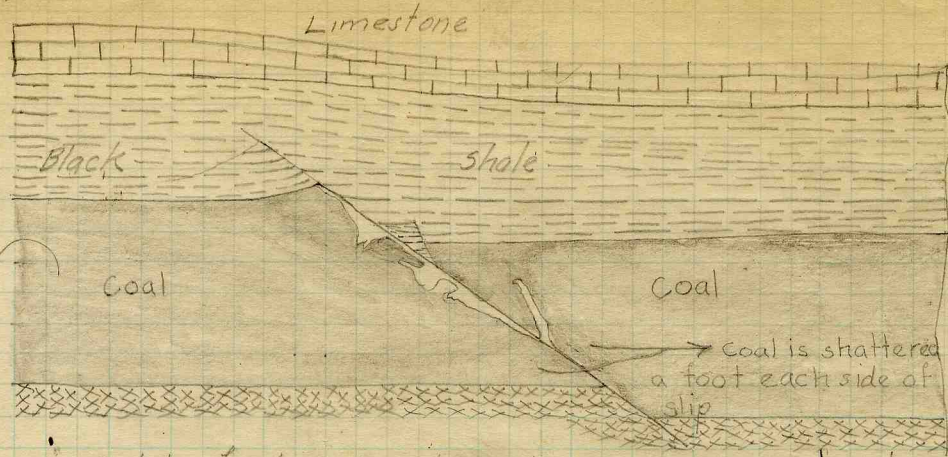 Limestone
Black shale
Coal
Coal
Coal is shattered
a foot each side of
slip